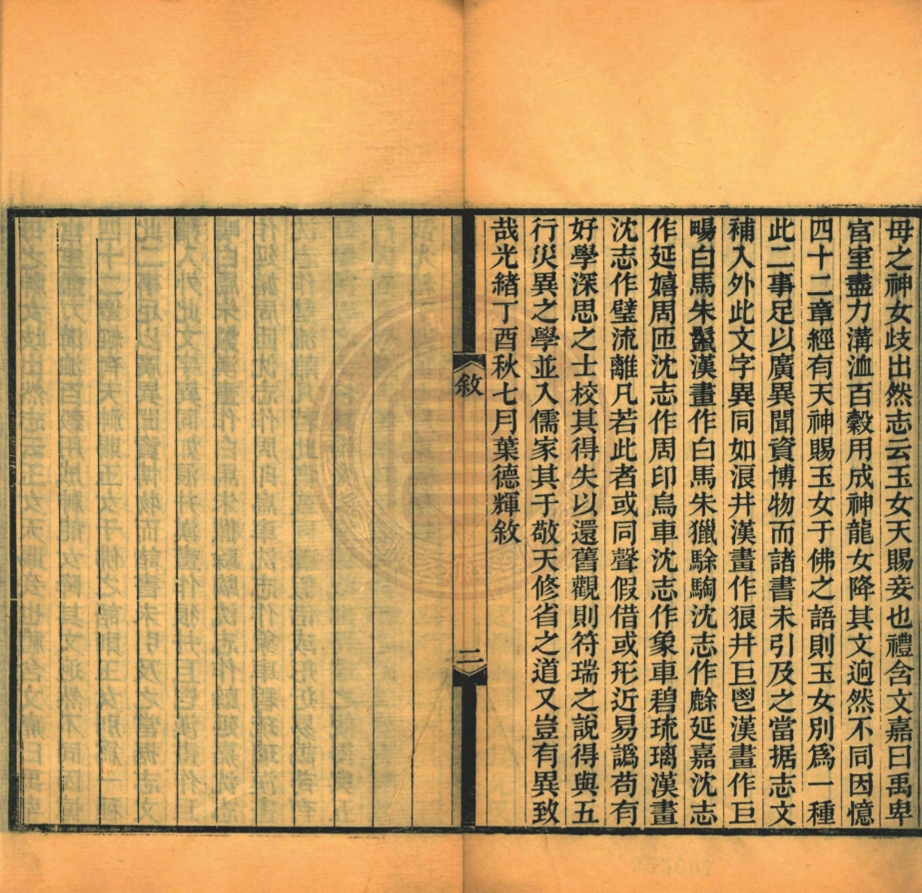 毋之神女歧出然志云玉女天賜妾也禮含文嘉曰禹卑
宮室盡力溝洫百穀用成神龍女降其文迥然不同因憶
四十二章經有天神賜玉女于佛之語則玉女別爲一種
此二事足以廣異聞資博物而諸書未引及之當据志文
補入外此文字異同如浪井漢畫作狼井巨鬯漢畫作巨
暢白馬朱鬣漢畫作白馬朱獵騄騊沈志作騄延嘉沈志
作延嬉周匝沈志作周印烏車沈志作象車碧琉璃漢畫
沈志作璧流離凡若此者或同聲假借或形近易譌苟有
好學深思之士校其得失以還舊觀則符瑞之說得與五
行災異之學並入儒家其于敬天修省之道又豈有異致
哉光緒丁酉秋七月葉德輝敘
敘
二